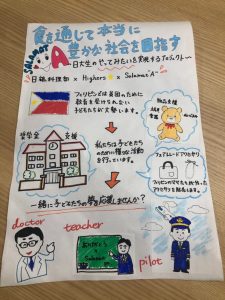 食を通して本当に
豊かな社会を目指す
SALAMAT
A
〜日大生のやってみたいを実現するプロジェクト〜
日大料理部 × Highers × Salamat"A"
フィリピンでは貧困のために
教育を受けられない
子どもたちが大勢います。
物品支援
奨学金 支援
私たちは子どもたち
のために様々な活動
を行っています。
フェアトレードアクセサリー
フィリピンの
アクセサリーを販売
一緒に子どもたちの夢を応援しませんか?
doctor
teacher
pilot
ありがとう
Salamat